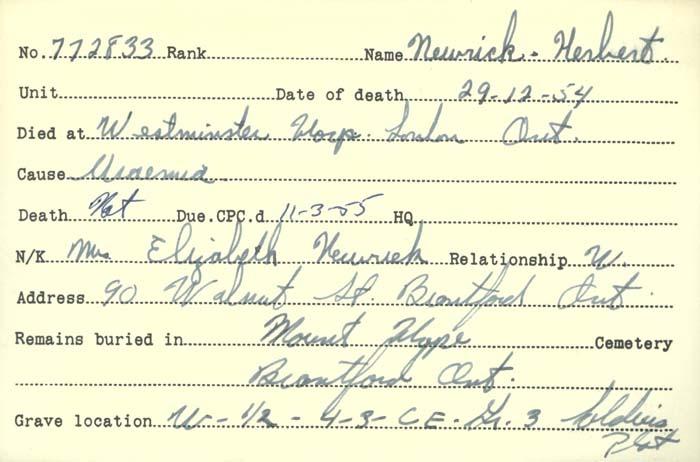 No. 772833 Rank Name Newrick - Herbert.
Unit Date of death 29-12-54
Died at Westminster Hosp. London Ont.
Cause Uraemia
Death Not Due.CPC.d 11-3-55 HQ
N/K Mrs Elizabeth Newrick Relationship W.
Address 90 Walnut St. Brantford Ont.
Remains buried in Mount Hope Cemetery
Brantford Ont.
Grave location W - 1/2 - 4-3 - C E - Gr. 3 Soldiers
Plot